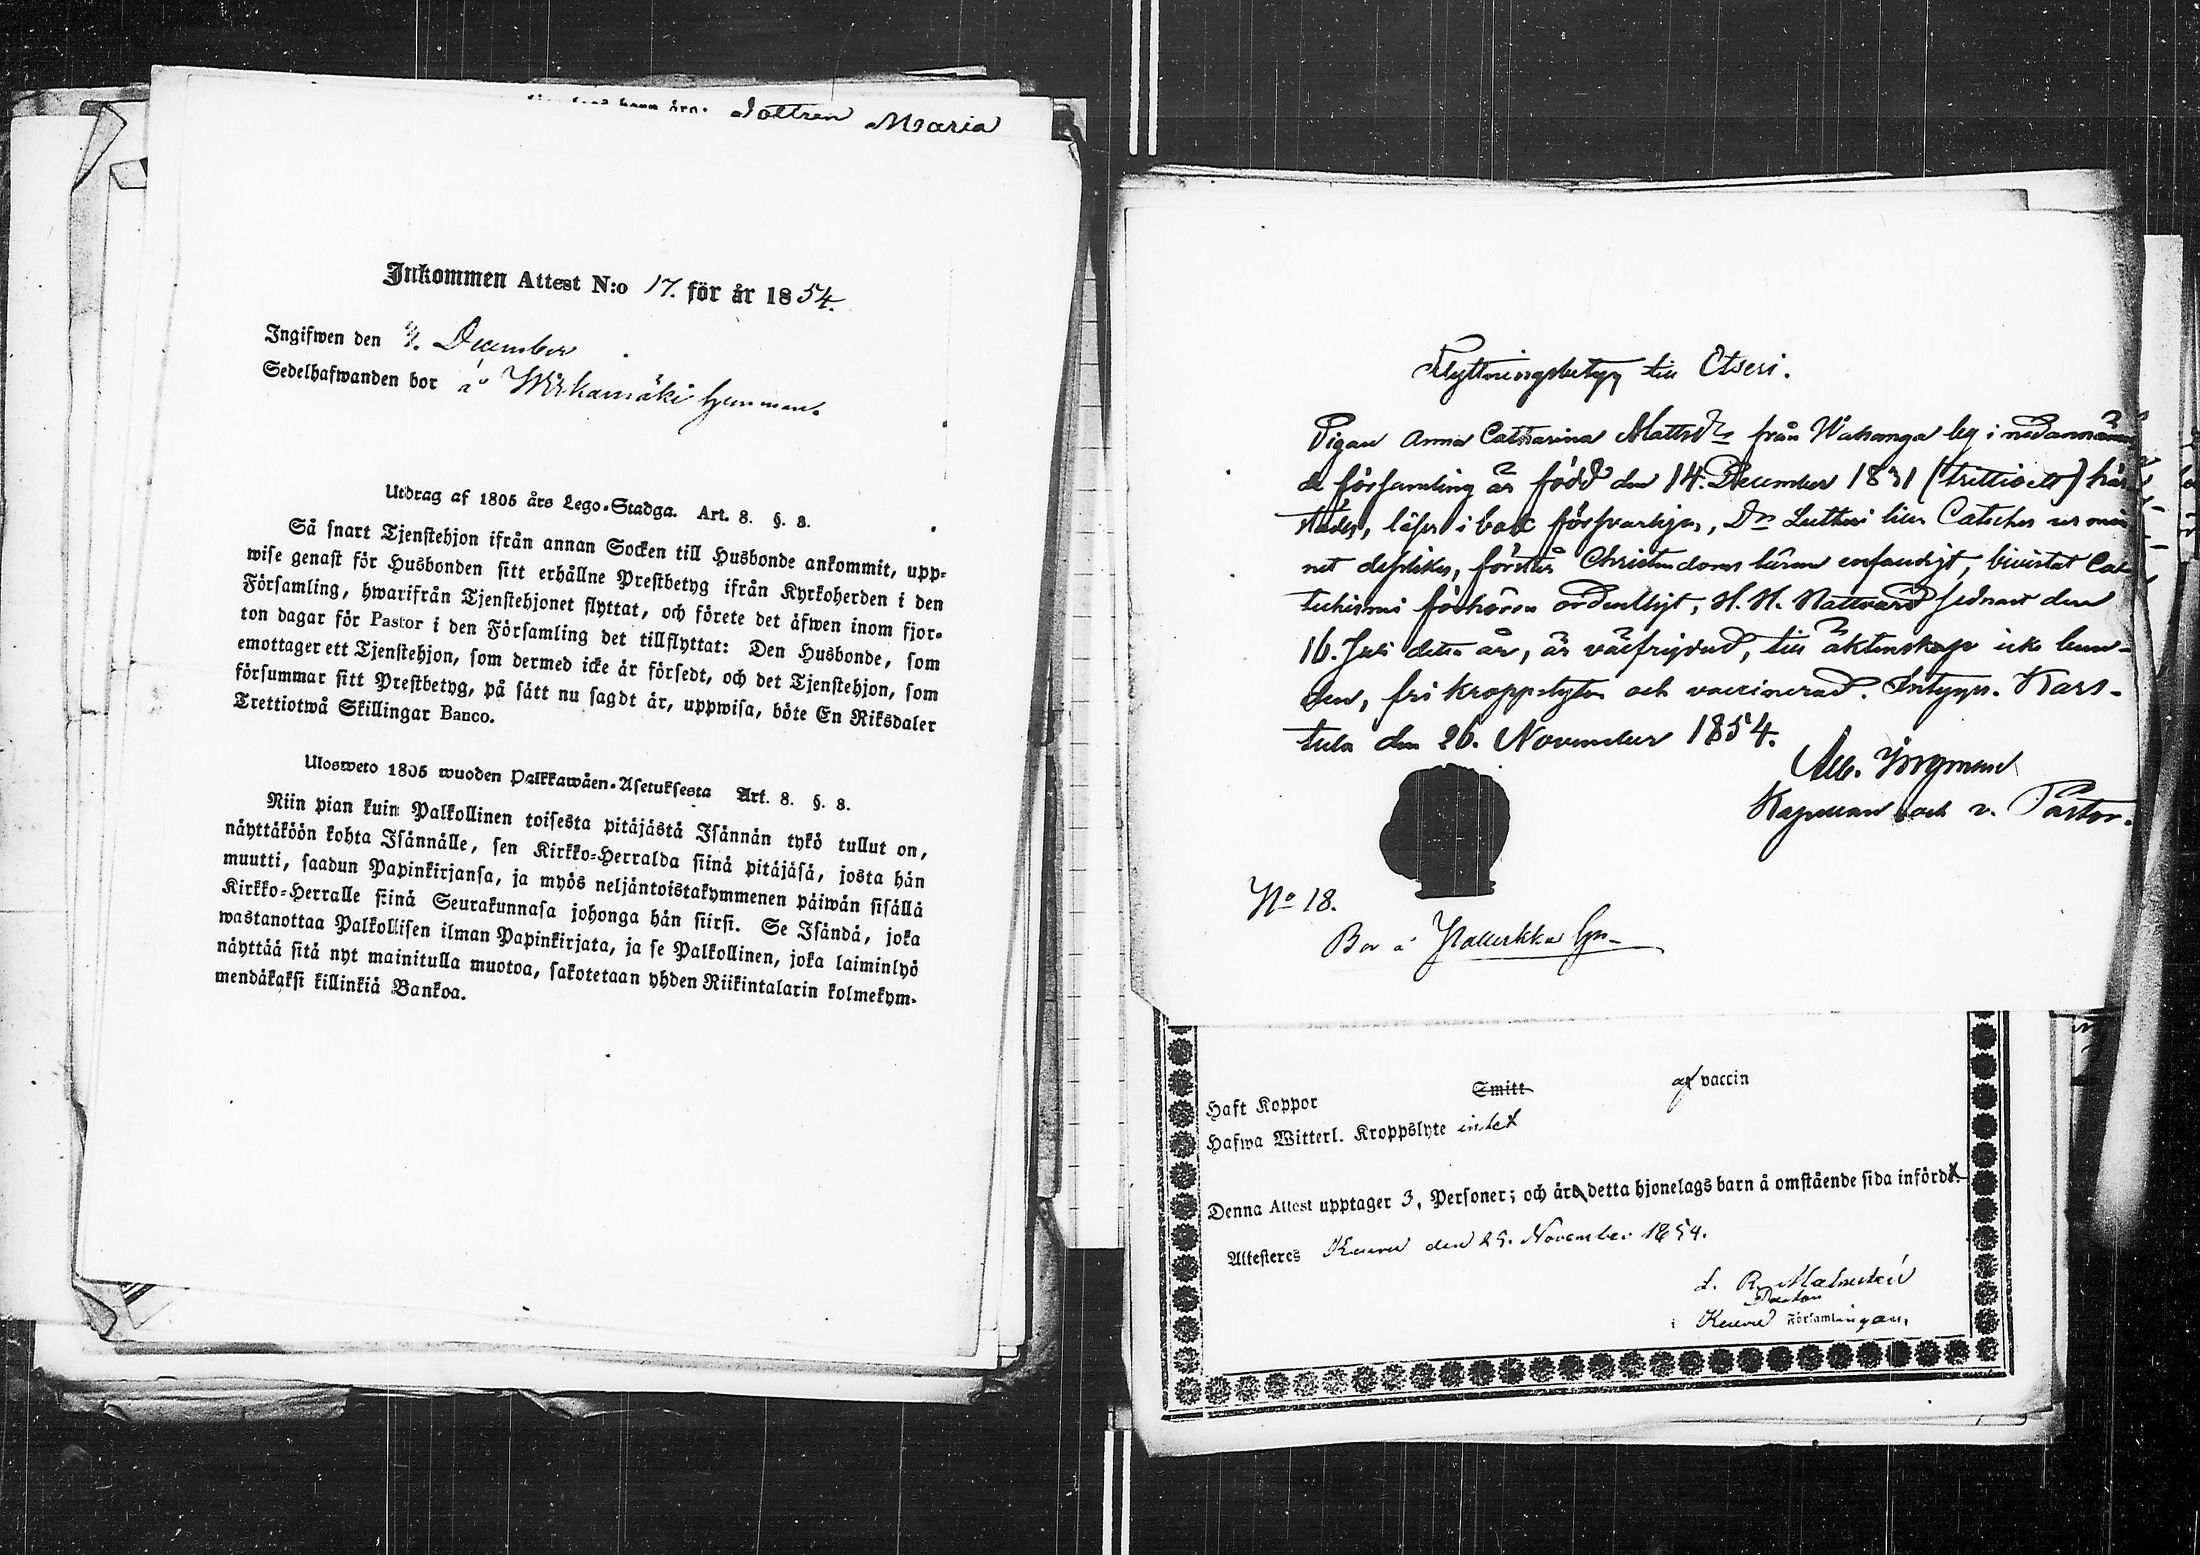 Dottren Maria
Inkommen Attest N:o 17. för år 1854.
Ingifwen den 9. December
Sedelhafwanden bor å Wirkamäki hemman.
Utdrag af 1805 års Lego-Stadga. Art. 8. §. 8.
Så snart Tjenstehjon ifrån annan Socken till Husbonde ankommit, upp-
wise genast för Husbonden sitt erhållne Prestbetyg ifrån Kyrkoherden i den
Församling, hwarifrån Tjenstehjonet flyttat, och förete det äfwen inom fjor-
ton dagar för Pastor i den Församling det tillflyttat: Den Husbonde, som
emottager ett Tjenstehjon, som dermed icke är försedt, och det Tjenstehjon, som
försummar sitt Prestbetyg, på sätt nu sagdt är, uppwisa, böte En Riksdaler
Trettiotwå Skillingar Banco.
Ulosweto 1805 wuoden Palkkawäen-Asetuksesta Art. 8. §. 8.
Niin pian kuin Palkollinen toisesta pitäjästä Isännän tykö tullut on,
näyttäköön kohta Isännälle, sen Kirkko-Herralda siinä pitäjäsä, josta hän
muutti, saadun Papinkirjansa, ja myös neljäntoistakymmenen päiwän sisällä
Kirkko-Herralle siinä Seurakunnasa johonga hän siirsi. Se Isändä, joka
wastanottaa Palkollisen ilman Papinkirjata, ja se Palkollinen, joka laiminlyö
näyttää sitä nyt mainitulla muotoa, sakotetaan yhden Riikintalarin kolmekym-
mendäkaksi killinkiä Bankoa.
Flyttningsbetyg till Etseri.
Pigan Anna Catharina Mattsdr från Wahanga by i nedannämn
de församling är född den 14. December 1831 (trettioett) här
städes, läser i bok försvarligen, Dr Lutheri lilla Cateches
förstår Christendoms läran enfaldigt, bivistat Cate
chismi förhören ordentligt, H. H. Nattvard sednast den
16. Juli detta år, är välfrejdad, till äktenskap icke bun-
den, fri kroppslyten och vaccinerad. Intygar. Kars-
tula den 26. November 1854.
Alb. Ingman
Kapellan och v. Pastor.
No 18.
Bor å
Haft Koppor Smitt af vaccin
Hafwa Witterl. Kroppslyte intet
Denna Attest upptager 3, Personer; och är detta hjonelags barn å omstående sida införd.
Attesteres Keuru den 29. November 1854.
L. R. Malmstén
Pastor
i Keuru Församlingan.